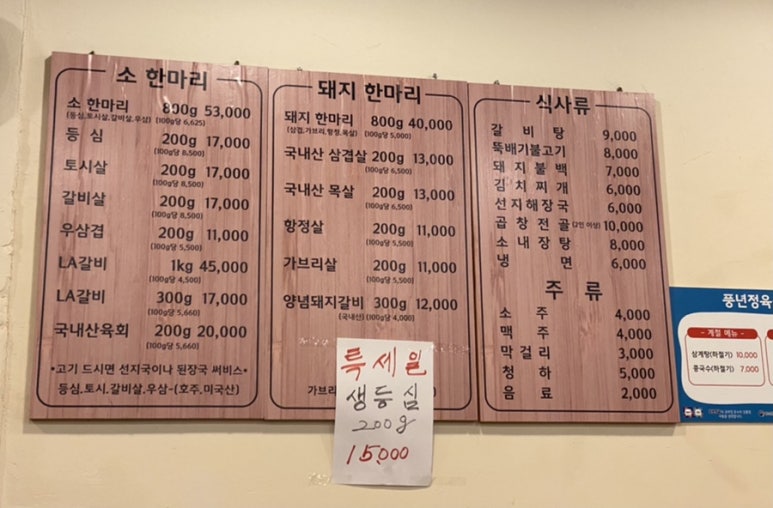 소 한마리
소 한마리 800g 53,000
(등심,토시살,갈비살,우삼) (100g당 6,625)
등 심 200g 17,000
(100g당 8,500)
토시살 200g 17,000
(100g당 8,500)
갈비살 200g 17,000
(100g당 8,500)
우삼겹 200g 11,000
(100g당 5,500)
LA갈비 1kg 45,000
(100g당 4,500)
LA갈비 300g 17,000
(100g당 5,660)
국내산육회 200g 20,000
(100g당 5,660)
•고기 드시면 선지국이나 된장국 써비스•
등심.토시.갈비살.우삼-(호주,미국산)
돼지 한마리
돼지 한마리 800g 40,000
(삼겹,가브리,항정,목살) (100g당 5,000)
국내산 삼겹살 200g 13,000
(100g당 6,500)
국내산 목살 200g 13,000
(100g당 6,500)
항정살 200g 11,000
(100g당 5,500)
가브리살 200g 11,000
(100g당 5,500)
양념돼지갈비 300g 12,000
(국내산) (100g당 4,000)
가브리
특세일
생등심
200g
15,000
식사류
갈비탕 9,000
뚝배기불고기 8,000
돼지불백 7,000
김치찌개 6,000
선지해장국 6,000
곱창전골(2인 이상) 10,000
소내장탕 8,000
냉면 6,000
주 류
소주 4,000
맥주 4,000
막걸리 3,000
청하 5,000
음료 2,000
풍년정육
- 계절 메뉴 -
삼계탕(하절기) 10,000
콩국수(하절기) 7,000